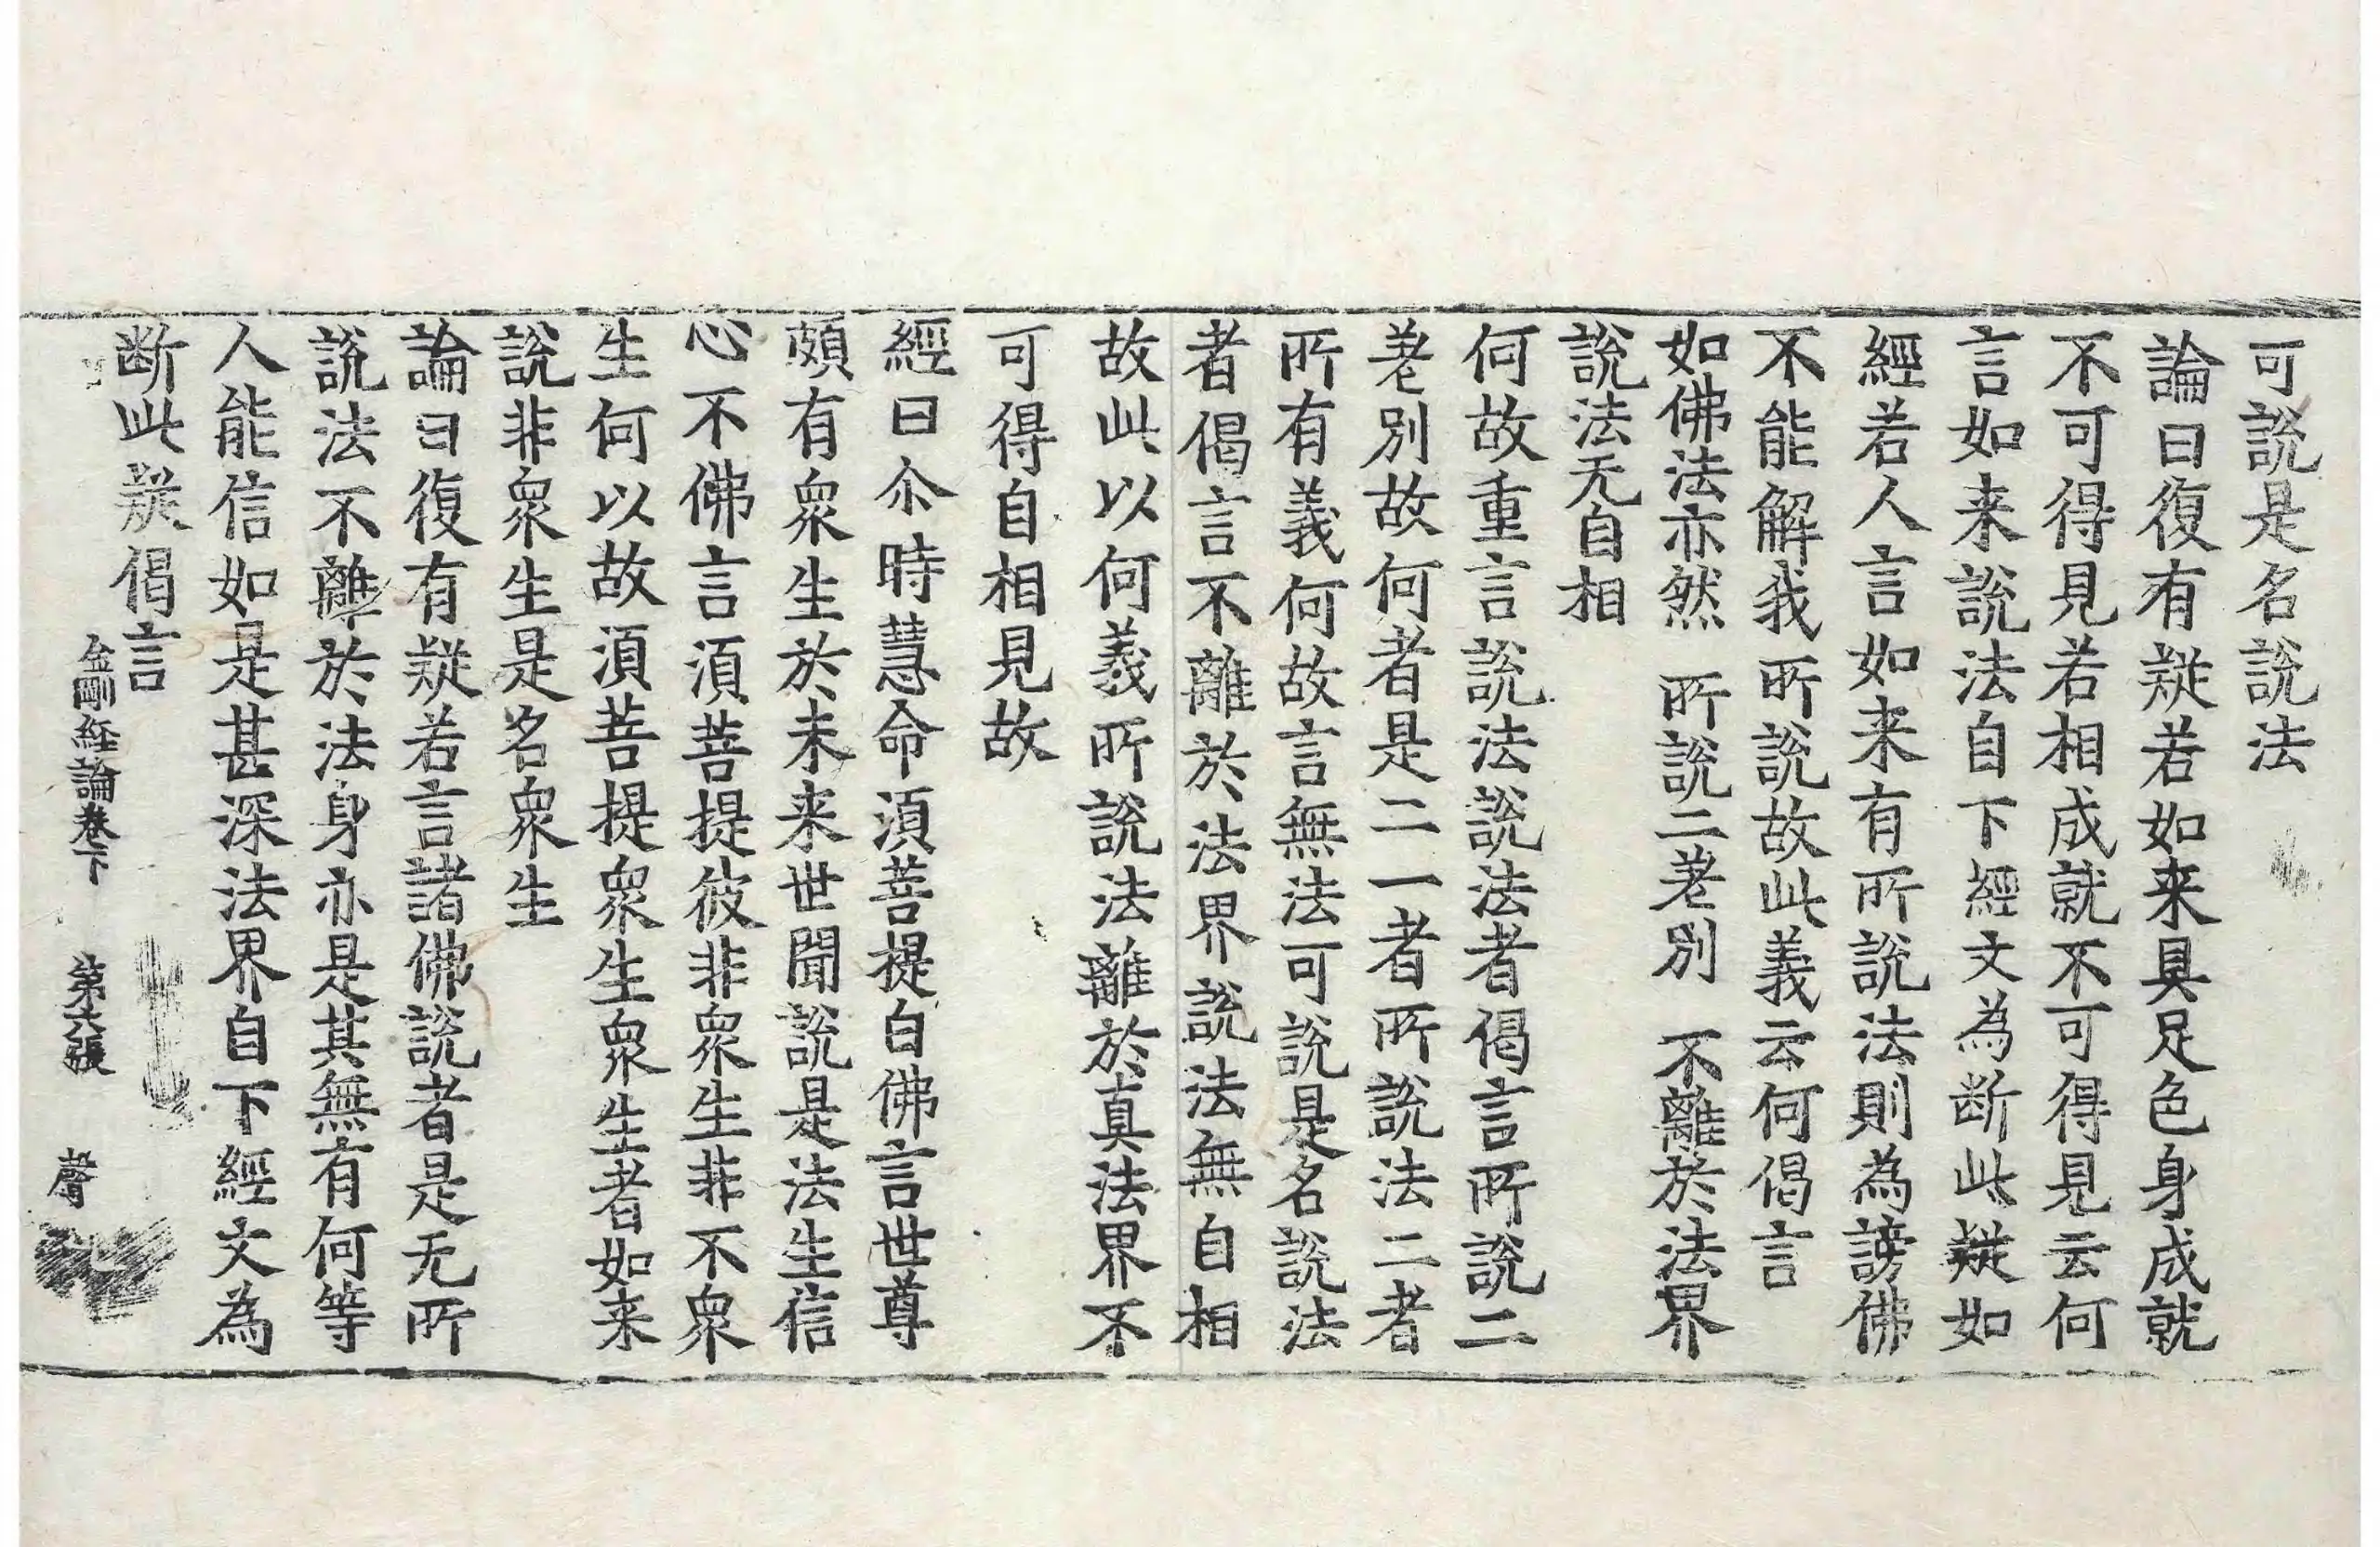 可說是名說法
論曰復有疑若如来具足色身成就
不可得見若相成就不可得見云何
言如来說法自下經文為断此疑如
經若人言如来有所說法則為謗佛
不能解我所說故此義云何偈言
如佛法亦然　所說二差別　不離於法界
說法无自相
何故重言說法說法者偈言所說二
差別故何者是二一者所說法二者
所有義何故言無法可說是名說法
者偈言不離於法界說法無自相
故此以何義所說法離於真法界不
可得自相見故
經曰尒時慧命須菩提白佛言世尊
頗有衆生於未来世聞說是法生信
心不佛言須菩提彼非衆生非不衆
生何以故須菩提衆生衆生者如来
說非衆生是名衆生
論曰復有疑若言諸佛說者是无所
說法不離於法身亦是其無有何等
人能信如是甚深法界自下經文為
断此疑偈言
金剛經論卷下　第六張　罄